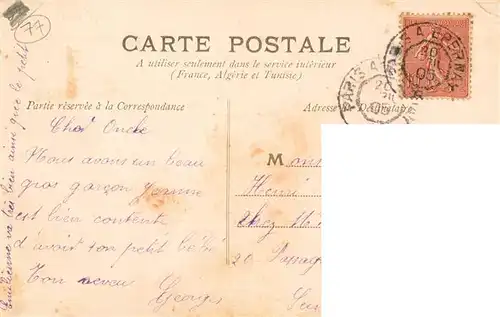 77
CARTE POSTALE
A utiliser seulement dans le service intérieur
(France, Algérie et Tunisie)
Partie réservée à la Correspondance
Adresse du Destinataire
PARIS A
PARIS A EPERNAY
20
05
Cher Oncle
Nous avons un beau
gros garçon Jeanne
est bien contente
d'avoir son petit bébé
Ton neveu
Georges
va très bien ainsi que le petit
M
Henri
Chez M
20 Passage